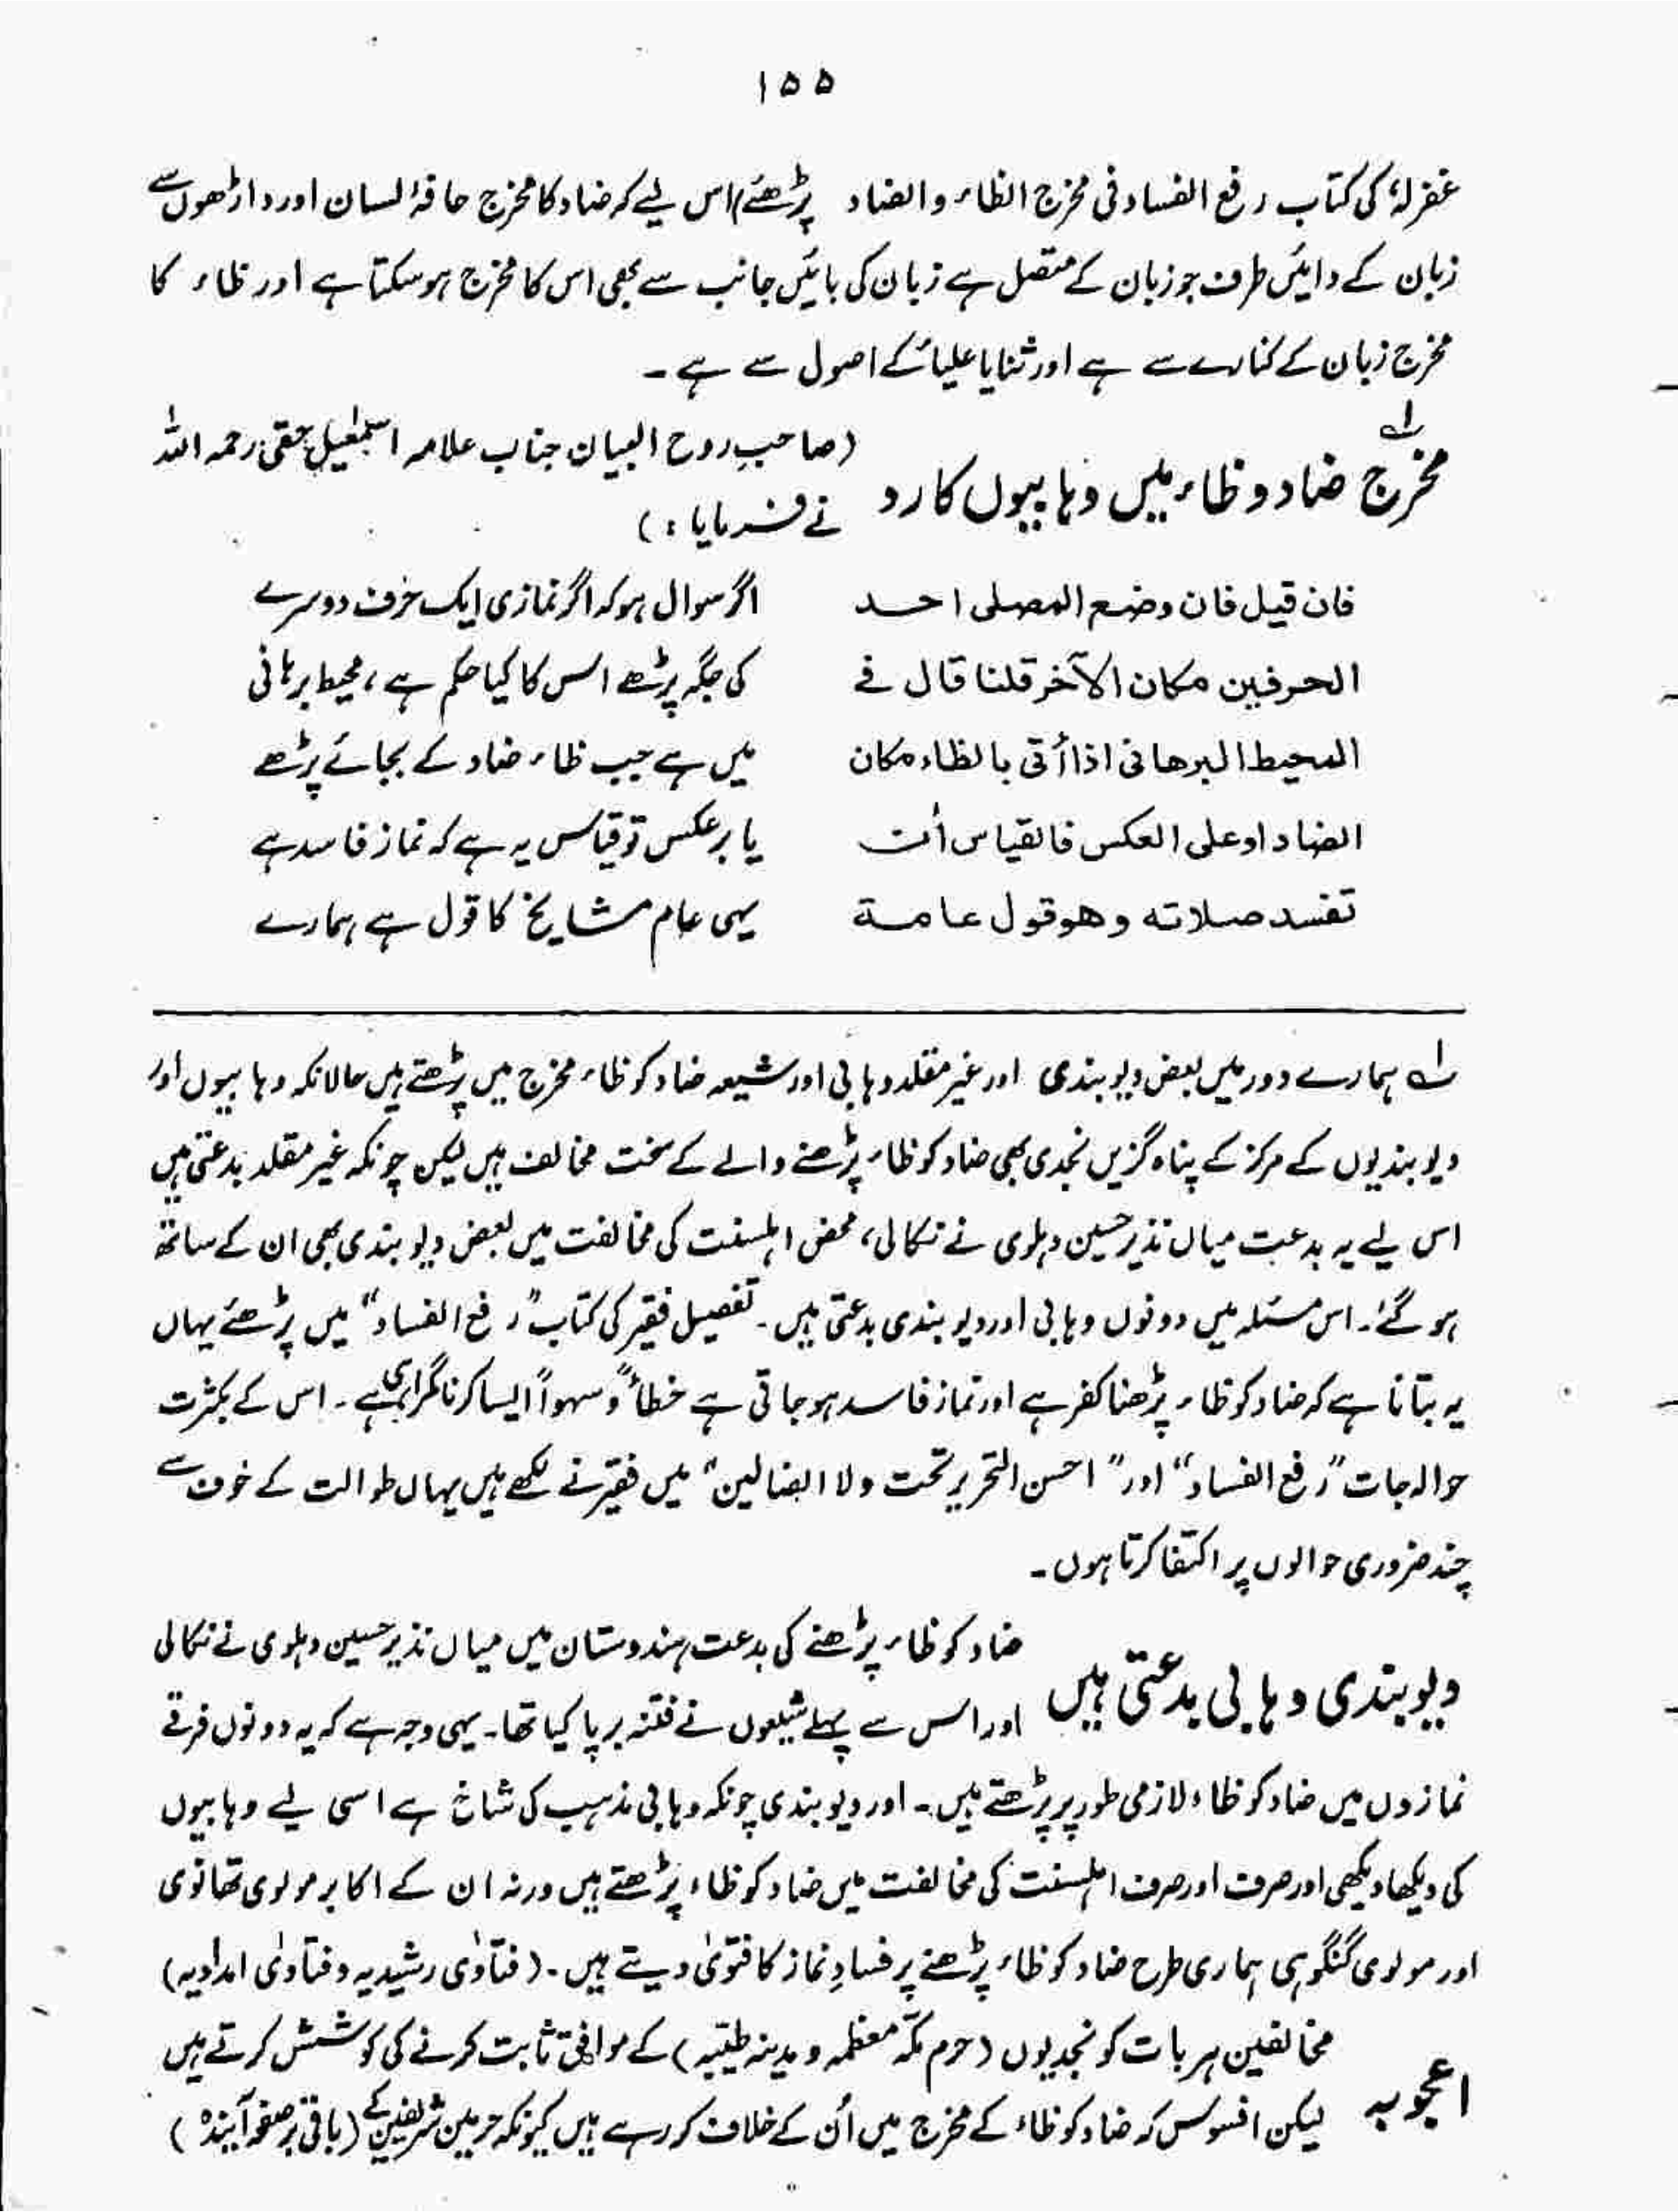 ۱۵۵
غفرلہٗ کی کتاب رفع الفساد فی مخرج الظاء والضاد پڑھئے) اس لیے کہ ضاد کا مخرج حافۂ لسان اور داڑھوں سے
زبان کے دائیں طرف جو زبان کے متصل ہے زبان کی بائیں جانب سے بھی اس کا مخرج ہوسکتا ہے اور ظاء کا
مخرج زبان کے کنارے سے ہے اور ثنایا علیاکے اصول سے ہے۔
مخرج ضاد و ظاء میں وہابیوں کا رد ؎۱
(صاحبِ روح البیان جناب علامہ اسمٰعیل حقی رحمہ اللہ
نے فرمایا:)
فان قیل فان وضع المصلی احد
الحرفین مکان الآخر قلنا قال فے
المحیط البرھانی اذا أتی بالظاء مکان
الضاد او علی العکس فالقیاس أن
تفسد صلاته وھو قول عامة
اگر سوال ہو کہ اگر نمازی ایک حرف دوسرے
کی جگہ پڑھے اس کا کیا حکم ہے، محیط برہانی
میں ہے جب ظاء ضاد کے بجائے پڑھے
یا برعکس تو قیاس یہ ہے کہ نماز فاسد ہے
یہی عام مشایخ کا قول ہے ہمارے
؎۱ ہمارے دور میں بعض دیوبندی اور غیر مقلد وہابی اور شیعہ ضاد کو ظاء مخرج میں پڑھتے ہیں حالانکہ وہابیوں اور
دیوبندیوں کے مرکز کے پناہ گزیں نجدی بھی ضاد کو ظاء پڑھنے والے کے سخت مخالف ہیں لیکن چونکہ غیر مقلد بدعتی ہیں
اس لیے یہ بدعت میاں نذیر حسین دہلوی نے نکالی، محض اہلسنت کی مخالفت میں بعض دیوبندی بھی ان کے ساتھ
ہو گئے۔ اس مسئلہ میں دونوں وہابی اور دیوبندی بدعتی ہیں۔ تفصیل فقیر کی کتاب "رفع الفساد" میں پڑھئے یہاں
یہ بتانا ہے کہ ضاد کو ظاء پڑھنا کفر ہے اور نماز فاسد ہو جاتی ہے خطأً و سہواً ایسا کرنا گمراہی ہے۔ اس کے بکثرت
حوالہ جات "رفع الفساد" اور "احسن التحریر تحت ولا الضالین" میں فقیر نے لکھے ہیں یہاں طوالت کے خوف سے
چند ضروری حوالوں پر اکتفا کرتا ہوں۔
دیوبندی وہابی بدعتی ہیں
ضاد کو ظاء پڑھنے کی بدعت ہندوستان میں میاں نذیر حسین دہلوی نے نکالی
اور اس سے پہلے شیعوں نے فتنہ برپا کیا تھا۔ یہی وجہ ہے کہ یہ دونوں فرقے
نمازوں میں ضاد کو ظاء لازمی طور پر پڑھتے ہیں۔ اور دیوبندی چونکہ وہابی مذہب کی شاخ ہے اسی لیے وہابیوں
کی دیکھا دیکھی اور صرف اور صرف اہلسنت کی مخالفت میں ضاد کو ظاء پڑھتے ہیں ورنہ ان کے اکابر مولوی تھانوی
اور مولوی گنگوہی ہماری طرح ضاد کو ظاء پڑھنے پر فسادِ نماز کا فتویٰ دیتے ہیں۔ (فتاوٰی رشیدیہ و فتاوٰی امدادیہ)
اعجوبہ
مخالفین ہر بات کو نجدیوں (حرم مکّہ معظمہ و مدینہ طیّبہ) کے موافق ثابت کرنے کی کوشش کرتے ہیں
لیکن افسوس کہ ضاد کو ظاء کے مخرج میں اُن کے خلاف کر رہے ہیں کیونکہ حرمین شریفین کے (باقی بر صفحہ آیندہ)